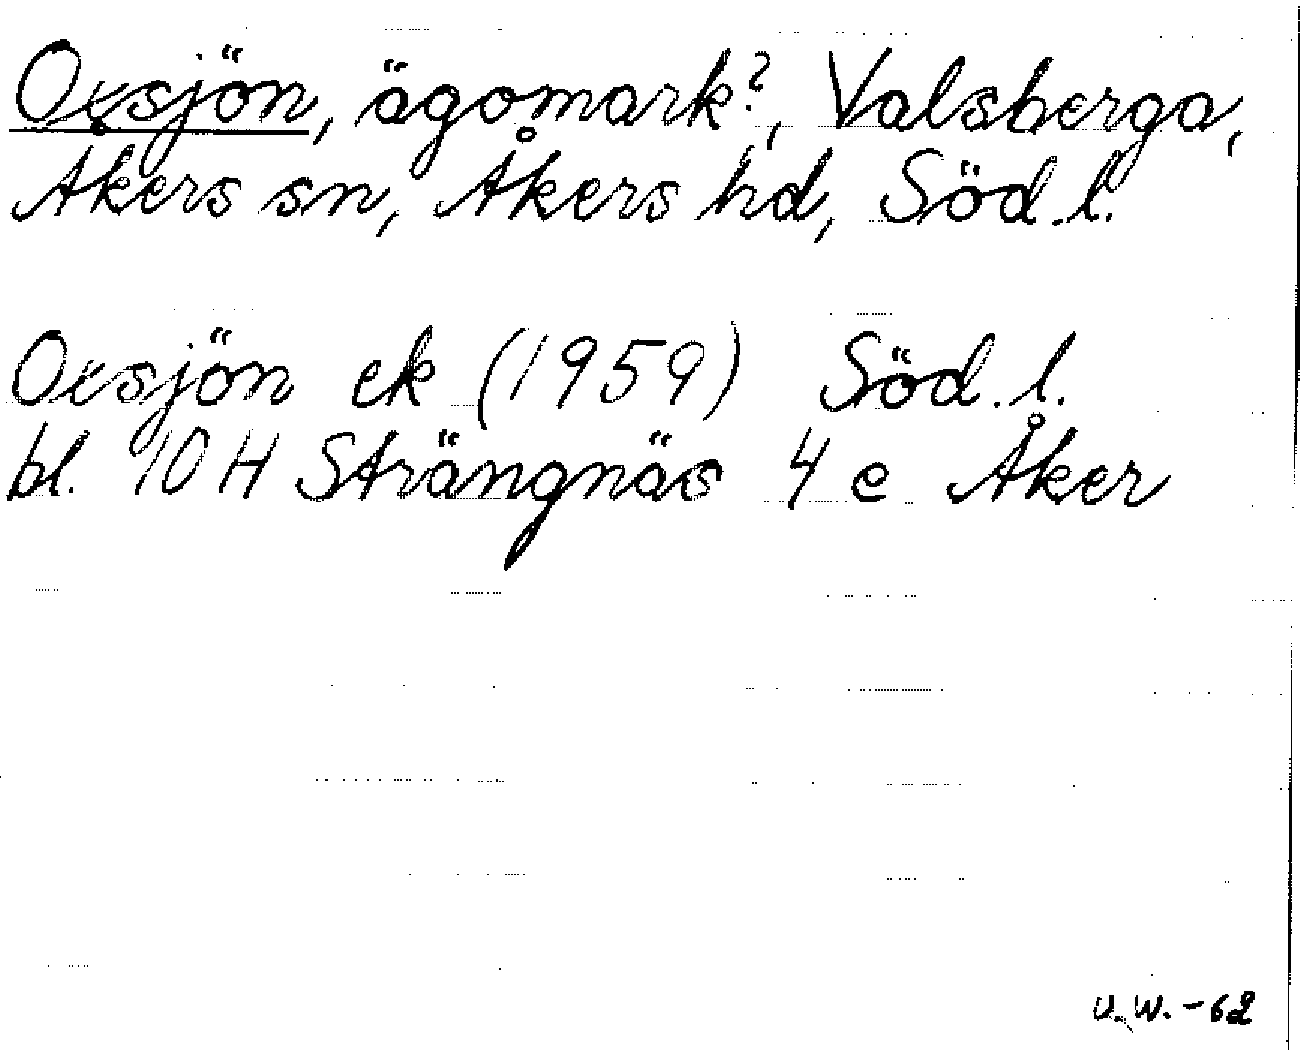 Oxsjön, ägomark?, Valsberga,
Åkers sn, Åkers hd, Söd.l.
Oxsjön ek (1959) Söd.l.
bl. 10 H Strängnäs 4 e Åker
U.W. -62